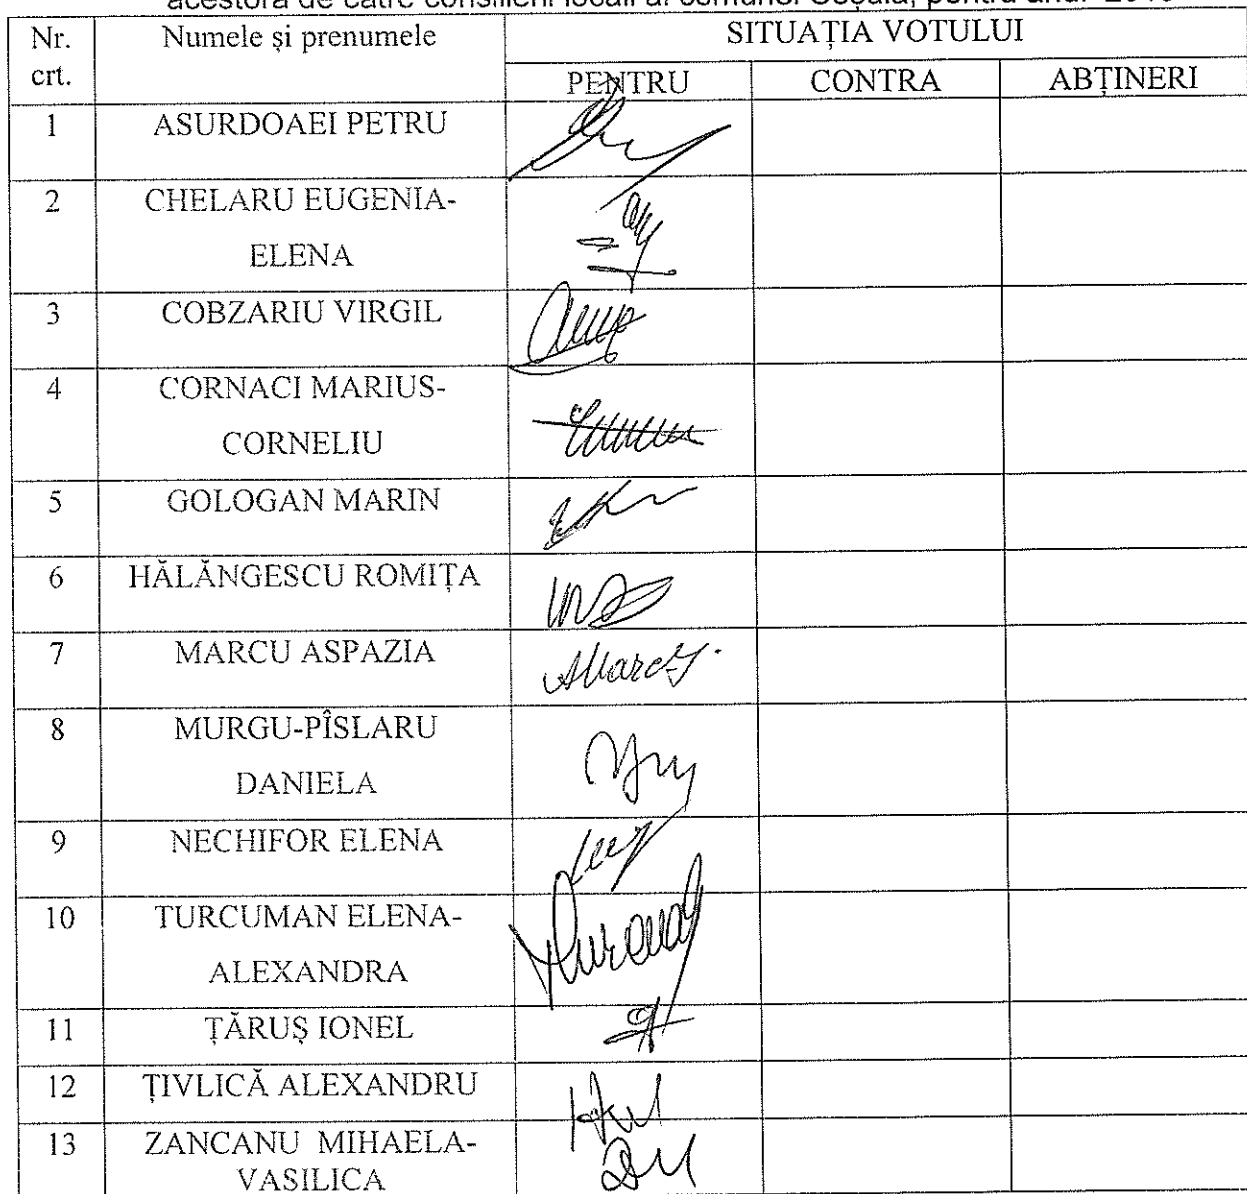 acestora de către consilierii locali ai comunei Coșula, pentru anul 2019
Nr. crt. Numele și prenumele SITUAȚIA VOTULUI
PENTRU CONTRA ABȚINERI
1 ASURDOAEI PETRU
2 CHELARU EUGENIA-
ELENA
3 COBZARIU VIRGIL
4 CORNACI MARIUS-
CORNELIU
5 GOLOGAN MARIN
6 HĂLĂNGESCU ROMIȚA
7 MARCU ASPAZIA
8 MURGU-PÎSLARU
DANIELA
9 NECHIFOR ELENA
10 TURCUMAN ELENA-
ALEXANDRA
11 ȚĂRUȘ IONEL
12 ȚIVLICĂ ALEXANDRU
13 ZANCANU MIHAELA-
VASILICA